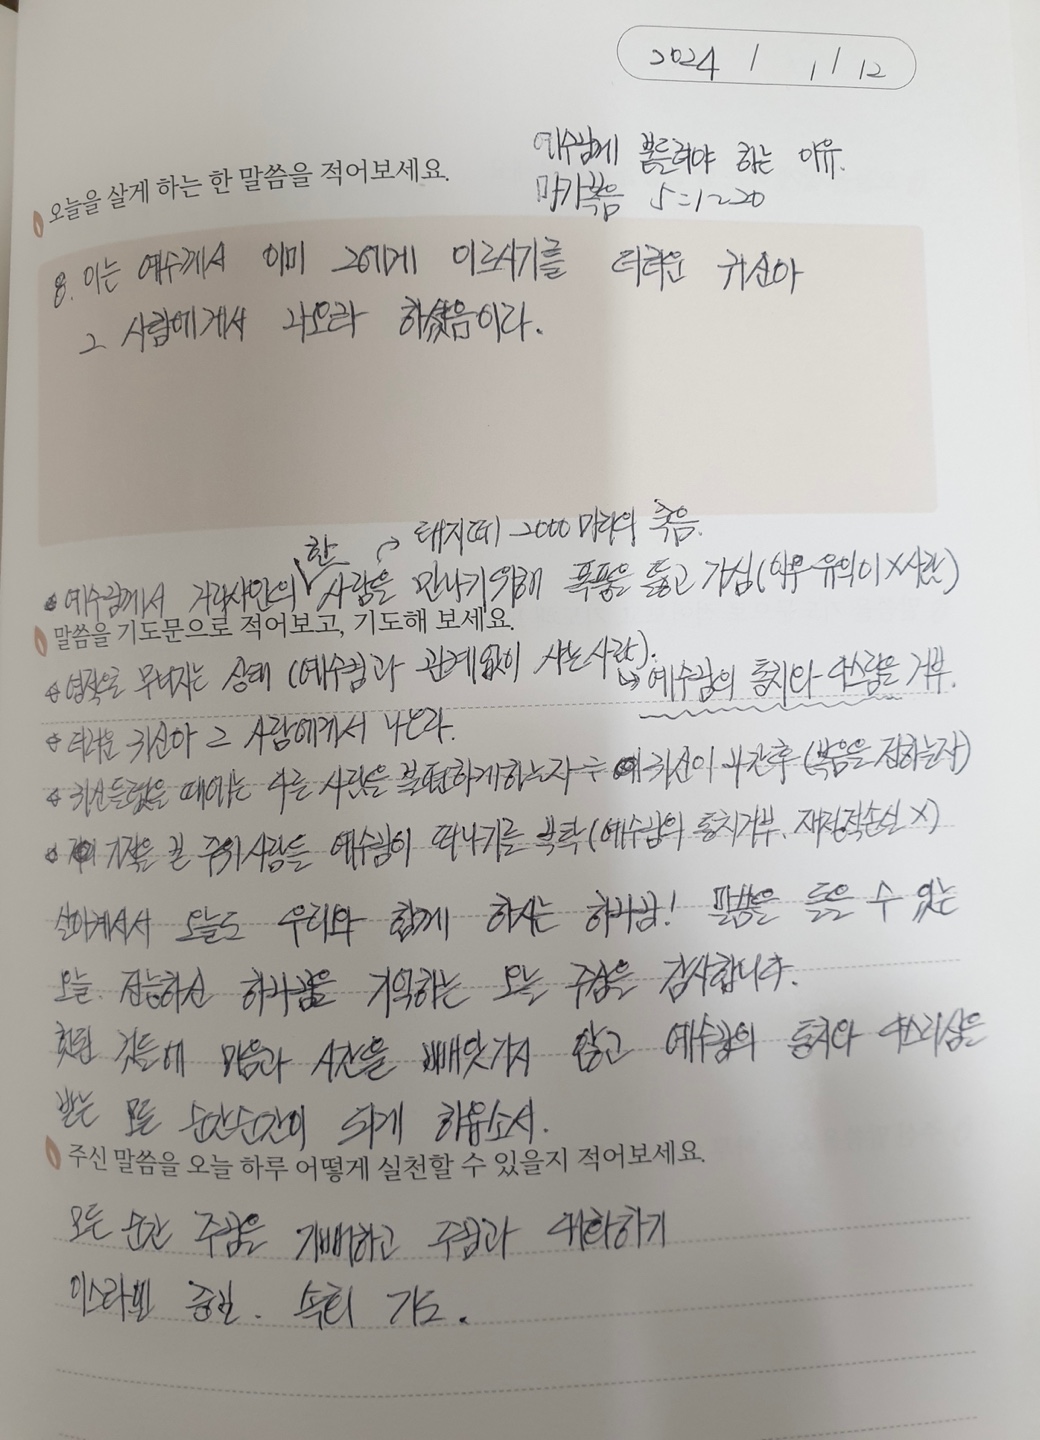 2024 / 1 / 12
예수님께 붙들려야 하는 이유.
마가복음 5:1~20
오늘을 살게 하는 한 말씀을 적어보세요.
8. 이는 예수께서 이미 그에게 이르시기를 더러운 귀신아
그 사람에게서 나오라 하셨음이라.
돼지떼 2000마리의 죽음.
예수님께서 거라사인의 한 사람을 만나기 위해 폭풍을 뚫고 가심(이유-유익이X사랑)
말씀을 기도문으로 적어보고, 기도해 보세요.
영적으로 무너지는 상태 (예수님과 관계없이 사는사람).
→ 예수님의 통치와 다스림을 거부.
더러운 귀신아 그 사람에게서 나오라.
귀신들렸을 때에는 다른 사람을 불편하게하는자 귀신이 나간후 (복음을 전하는자)
기적을 본 주위사람들 예수님이 떠나기를 부탁(예수님의 통치거부, 재정적손실 X)
살아계셔서 오늘도 우리와 함께 하시는 하나님! 말씀을 들을 수 있는
오늘. 전능하신 하나님을 기억하는 오늘 주심을 감사합니다.
헛된 것들에 마음과 시간을 빼앗기지 않고 예수님의 통치와 다스리심을
받는 모든 순간순간이 되게 하옵소서.
주신 말씀을 오늘 하루 어떻게 실천할 수 있을지 적어보세요.
모든 순간 주님을 기뻐하고 주님과 대화하기
종일. 속히 기도.